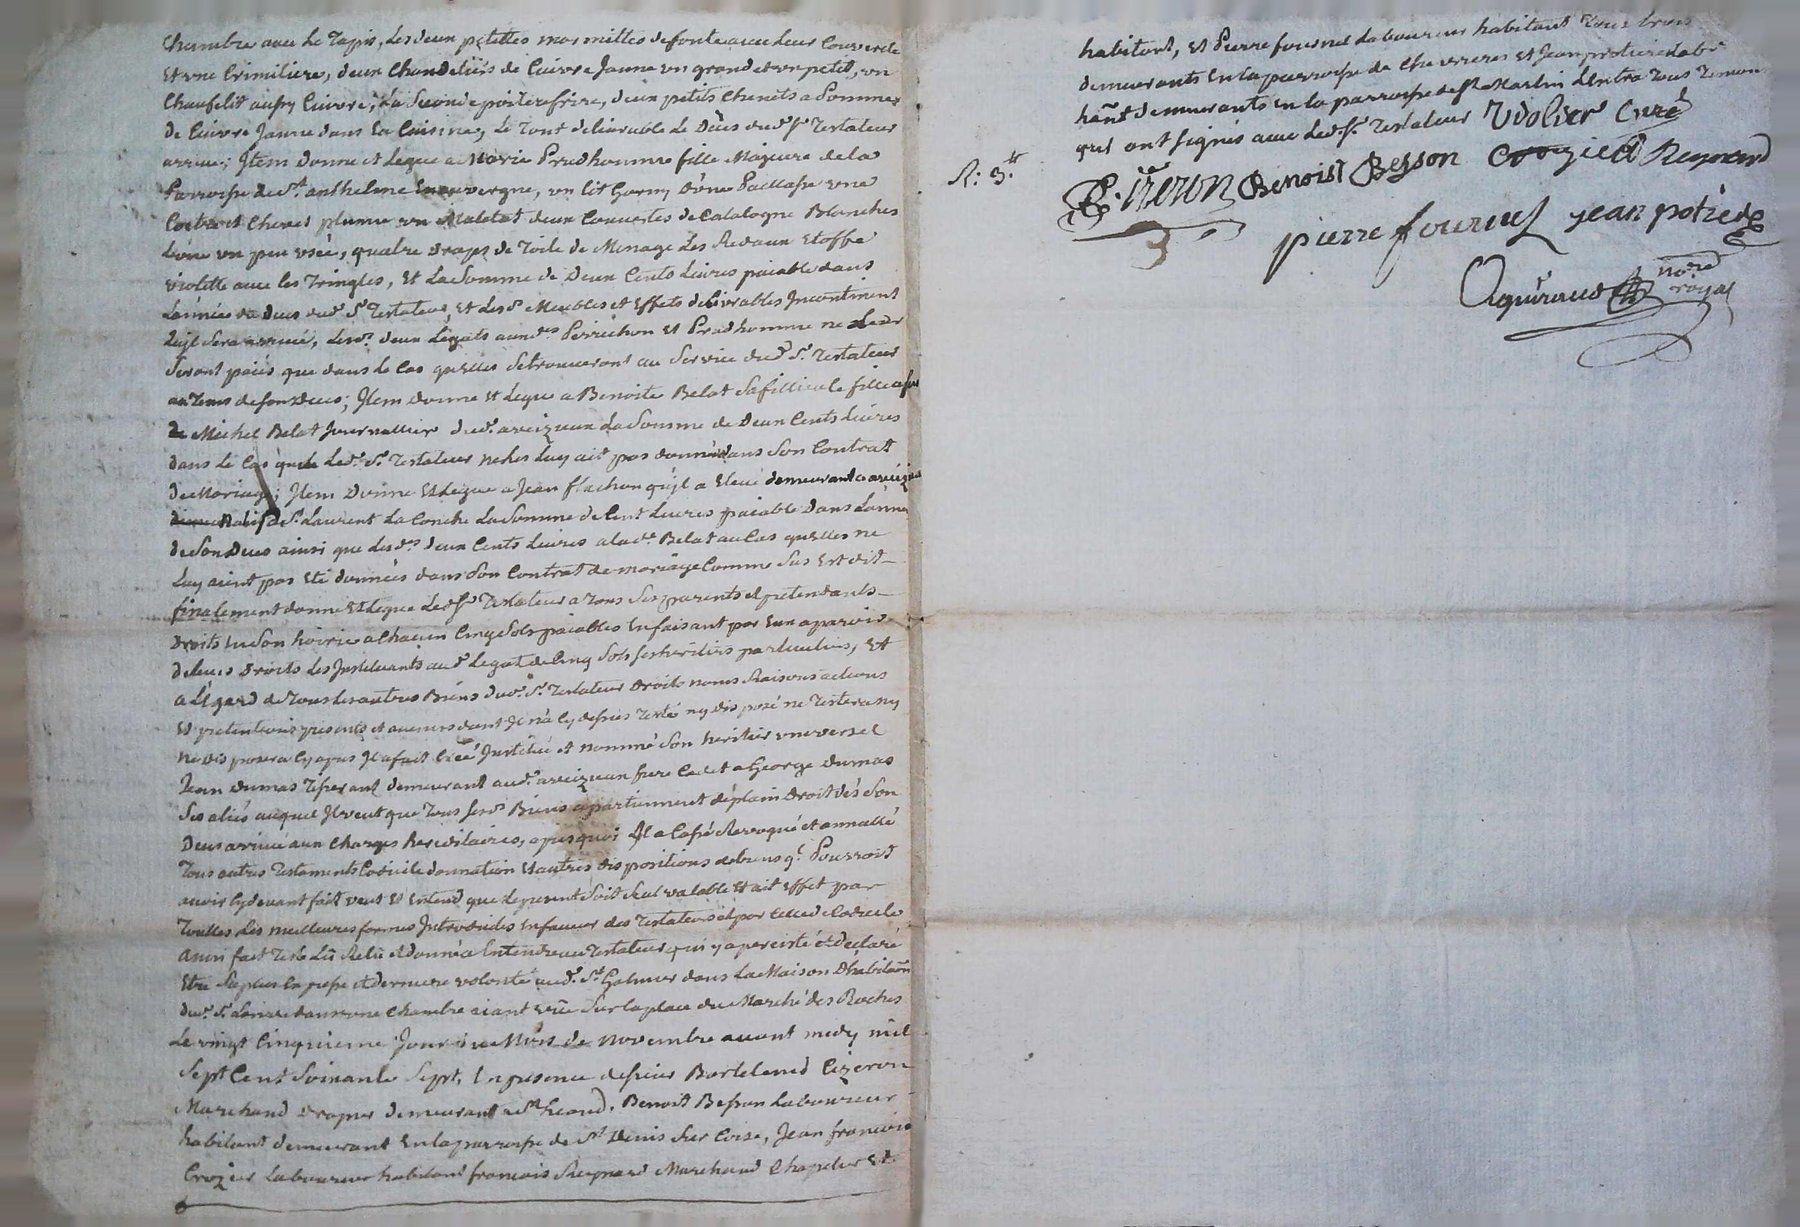 Chambre avec le Tapis, les deux petittes marmittes de fonte avec leur Couvercle
et une Crimiliere, deux Chandeliers de Cuivre Jaune un grand et un petit, un
Chaufelit aussy Cuivre, La Seconde poilerafrire, deux petits Chenets a Pommes
de Cuivre Jaune dans la Cuisine, le Tout delivrable le Déces dud. Sr. Testateur
arrivé; Item donne et Legue a Marie Prudhomme fille Majeure de la
Parroisse de St. anthelme En auvergne, un lit Garny d'une Paillasse une
Coitre et Chevet plume un Matelat deux Couvertes de Catalogne Blanches
L'une un peu usée, quatre draps de Toile de Menage les Rideaux Etoffe
violette avec les Tringles, Et La Somme de Deux Cents Livres paiable dans
L'année du Deces dud. Sr. Testateur, et Lesd. Meubles et Effets delivrables Incontinent
qu'jl Sera arrivé, Lesd. deux Legats auxd. Perrichon et Prudhomme ne Leur
Seront paiés que dans le Cas qu'elles Se trouveront au Service dud. Sr. Testateur
au Tems de son Deces; Item donne et Legue a Benoite Belat Sa fillieule fille a feu
Michel Belat Journallier dud. aveizieux La Somme de Deux Cents Livres
dans le Cas que led. Sr. Testateur ne les Luy ait pas données dans Son Contrat
de Mariage; Item Donne et Legue a Jean flachon qu'jl a Elevé demeurant a aveizieux
St. Laurent La Conche La Somme de Cent Livres paiable Dans L'année
de Son Deces ainsi que lesd. deux Cents Livres a lad. Belat au Cas qu'elles ne
Luy aient pas Eté données dans Son Contrat de mariage Comme Sus Est dit
finalement donne et Legue led. Sr. Testateur a Tous Ses parents et pretendants
Droits En Son hoirie a Chacun Cinq Sols paiables En faisant par Eux aparoir
de leurs Droits les Instituants aud. Legat de Cinq Sols ses heritiers particuliers, Et
a L'Egard de Tous les autres Biens dud. Sr. Testateur Droits noms Raisons actions
Et pretentions presents et avenirs dont Il n'a Cy dessus Testé ny disposé ne Testera ny
ne disposera Cy apres Il a fait Créé Institué et nommé Son heritier universel
Jean Dumas Tisserant demeurant aud. aveizieux frere Cadet a George Dumas
Ses aliés auquel Il veut que Tous sesd. Biens apartiennent de plain Droit dès Son
Deces arrivé aux Charges hereditaires, apres quoi Il a Cassé Revoqué et annullé
Tous autres Testaments Codicile donnation Et autres dispositions de biens q'l Pourroit
avoir Cy devant fait veut Et Entend que le present Soit Seul valable Et ait Effet par
Touttes Les meilleures formes Introduites En faveur des Testateurs et par Celle de Codicile
ainsi fait Testé Lû Relû et donné a Entendre aud. Testateur qui y a percisté et declaré
Etre Sa plus Expresse et derniere volonté aud. St. Galmier dans La Maison D'habitaon
dud. Sr. dans une Chambre aiant vüe Sur la place du Marché des Roches
Le vingt Cinquieme Jour du Mois de Novembre avant midy mil
Sept Cent Soixante Sept, En presence de Sieur Bartelemid Cizeron
Marchand drapier demeurant a St. heand, Benoit Besson Laboureur
habitant demeurant En la parroisse de St. Denis Sur Coise, Jean francois
Crozier Laboureur habitant francois Reynard Marchand Chapelier Et
habitant, Et Pierre fournel Laboureur habitant Tous trois
demeurants En la parroisse de Chevrieres et Jean protiere labr.
hant. demeurants En la parroisse de St. Martin L'Entra Tous Temoins
qui ont signés avec led. Sr. Testateur Vdolier Curé
R: 3.tt
B. Cizeron Benoist Besson Crozier Reynard
pierre fournel jean potiere
Aguiraud nore. royal